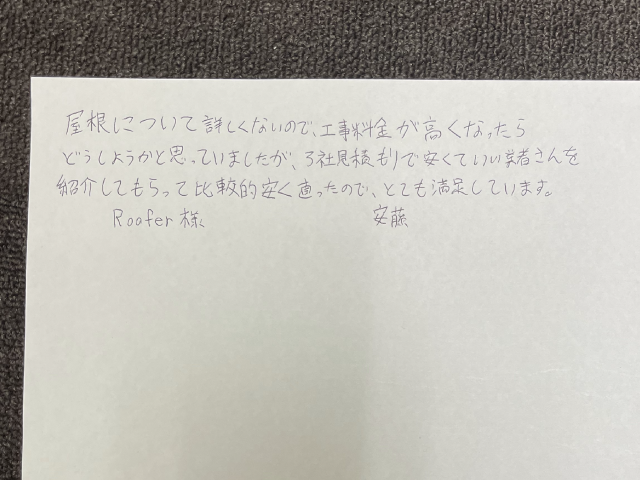 屋根について詳しくないので、工事料金が高くなったら
どうしようかと思っていましたが、3社見積もりで安くていい業者さんを
紹介してもらって比較的安く直ったので、とても満足しています。
Roofer様 安藤